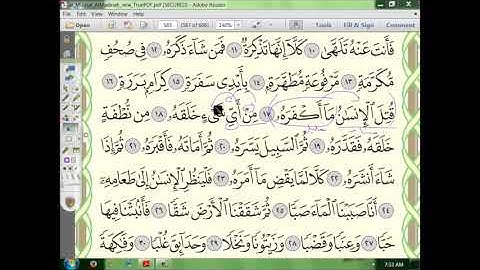 Al_Madinah_new_TruePDF.pdf (SECURED) - Adobe Reader
585 (587 of 606) 140% Tools Fill & Sign Comment
فَأَنتَ عَنْهُ تَلَهَّىٰ ١٠ كَلَّآ إِنَّهَا تَذْكِرَةٌ ١١ فَمَن شَآءَ ذَكَرَهُۥ ١٢ فِي صُحُفٍ
مُّكَرَّمَةٍ ١٣ مَّرْفُوعَةٍ مُّطَهَّرَةٍۭ ١٤ بِأَيْدِي سَفَرَةٍ ١٥ كِرَامٍۭ بَرَرَةٍ ١٦
قُتِلَ ٱلْإِنسَٰنُ مَآ أَكْفَرَهُۥ ١٧ مِنْ أَيِّ خَلَقَهُۥ ١٨ مِن نُّطْفَةٍ
خَلَقَهُۥ فَقَدَّرَهُۥ ١٩ ثُمَّ ٱلسَّبِيلَ يَسَّرَهُۥ ٢٠ ثُمَّ أَمَاتَهُۥ فَأَقْبَرَهُۥ ٢١ ثُمَّ إِذَا
شَآءَ أَنشَرَهُۥ ٢٢ كَلَّا لَمَّا يَقْضِ مَآ أَمَرَهُۥ ٢٣ فَلْيَنظُرِ ٱلْإِنسَٰنُ إِلَىٰ طَعَامِهِۦٓ
٢٤ أَنَّا صَبَبْنَا ٱلْمَآءَ صَبًّا ٢٥ ثُمَّ شَقَقْنَا ٱلْأَرْضَ شَقًّا ٢٦ فَأَنۢبَتْنَا فِيهَا
حَبًّا ٢٧ وَعِنَبًا وَقَضْبًا ٢٨ وَزَيْتُونًا وَنَخْلًا ٢٩ وَحَدَآئِقَ غُلْبًا ٣٠ وَفَٰكِهَةً
7:53 AM